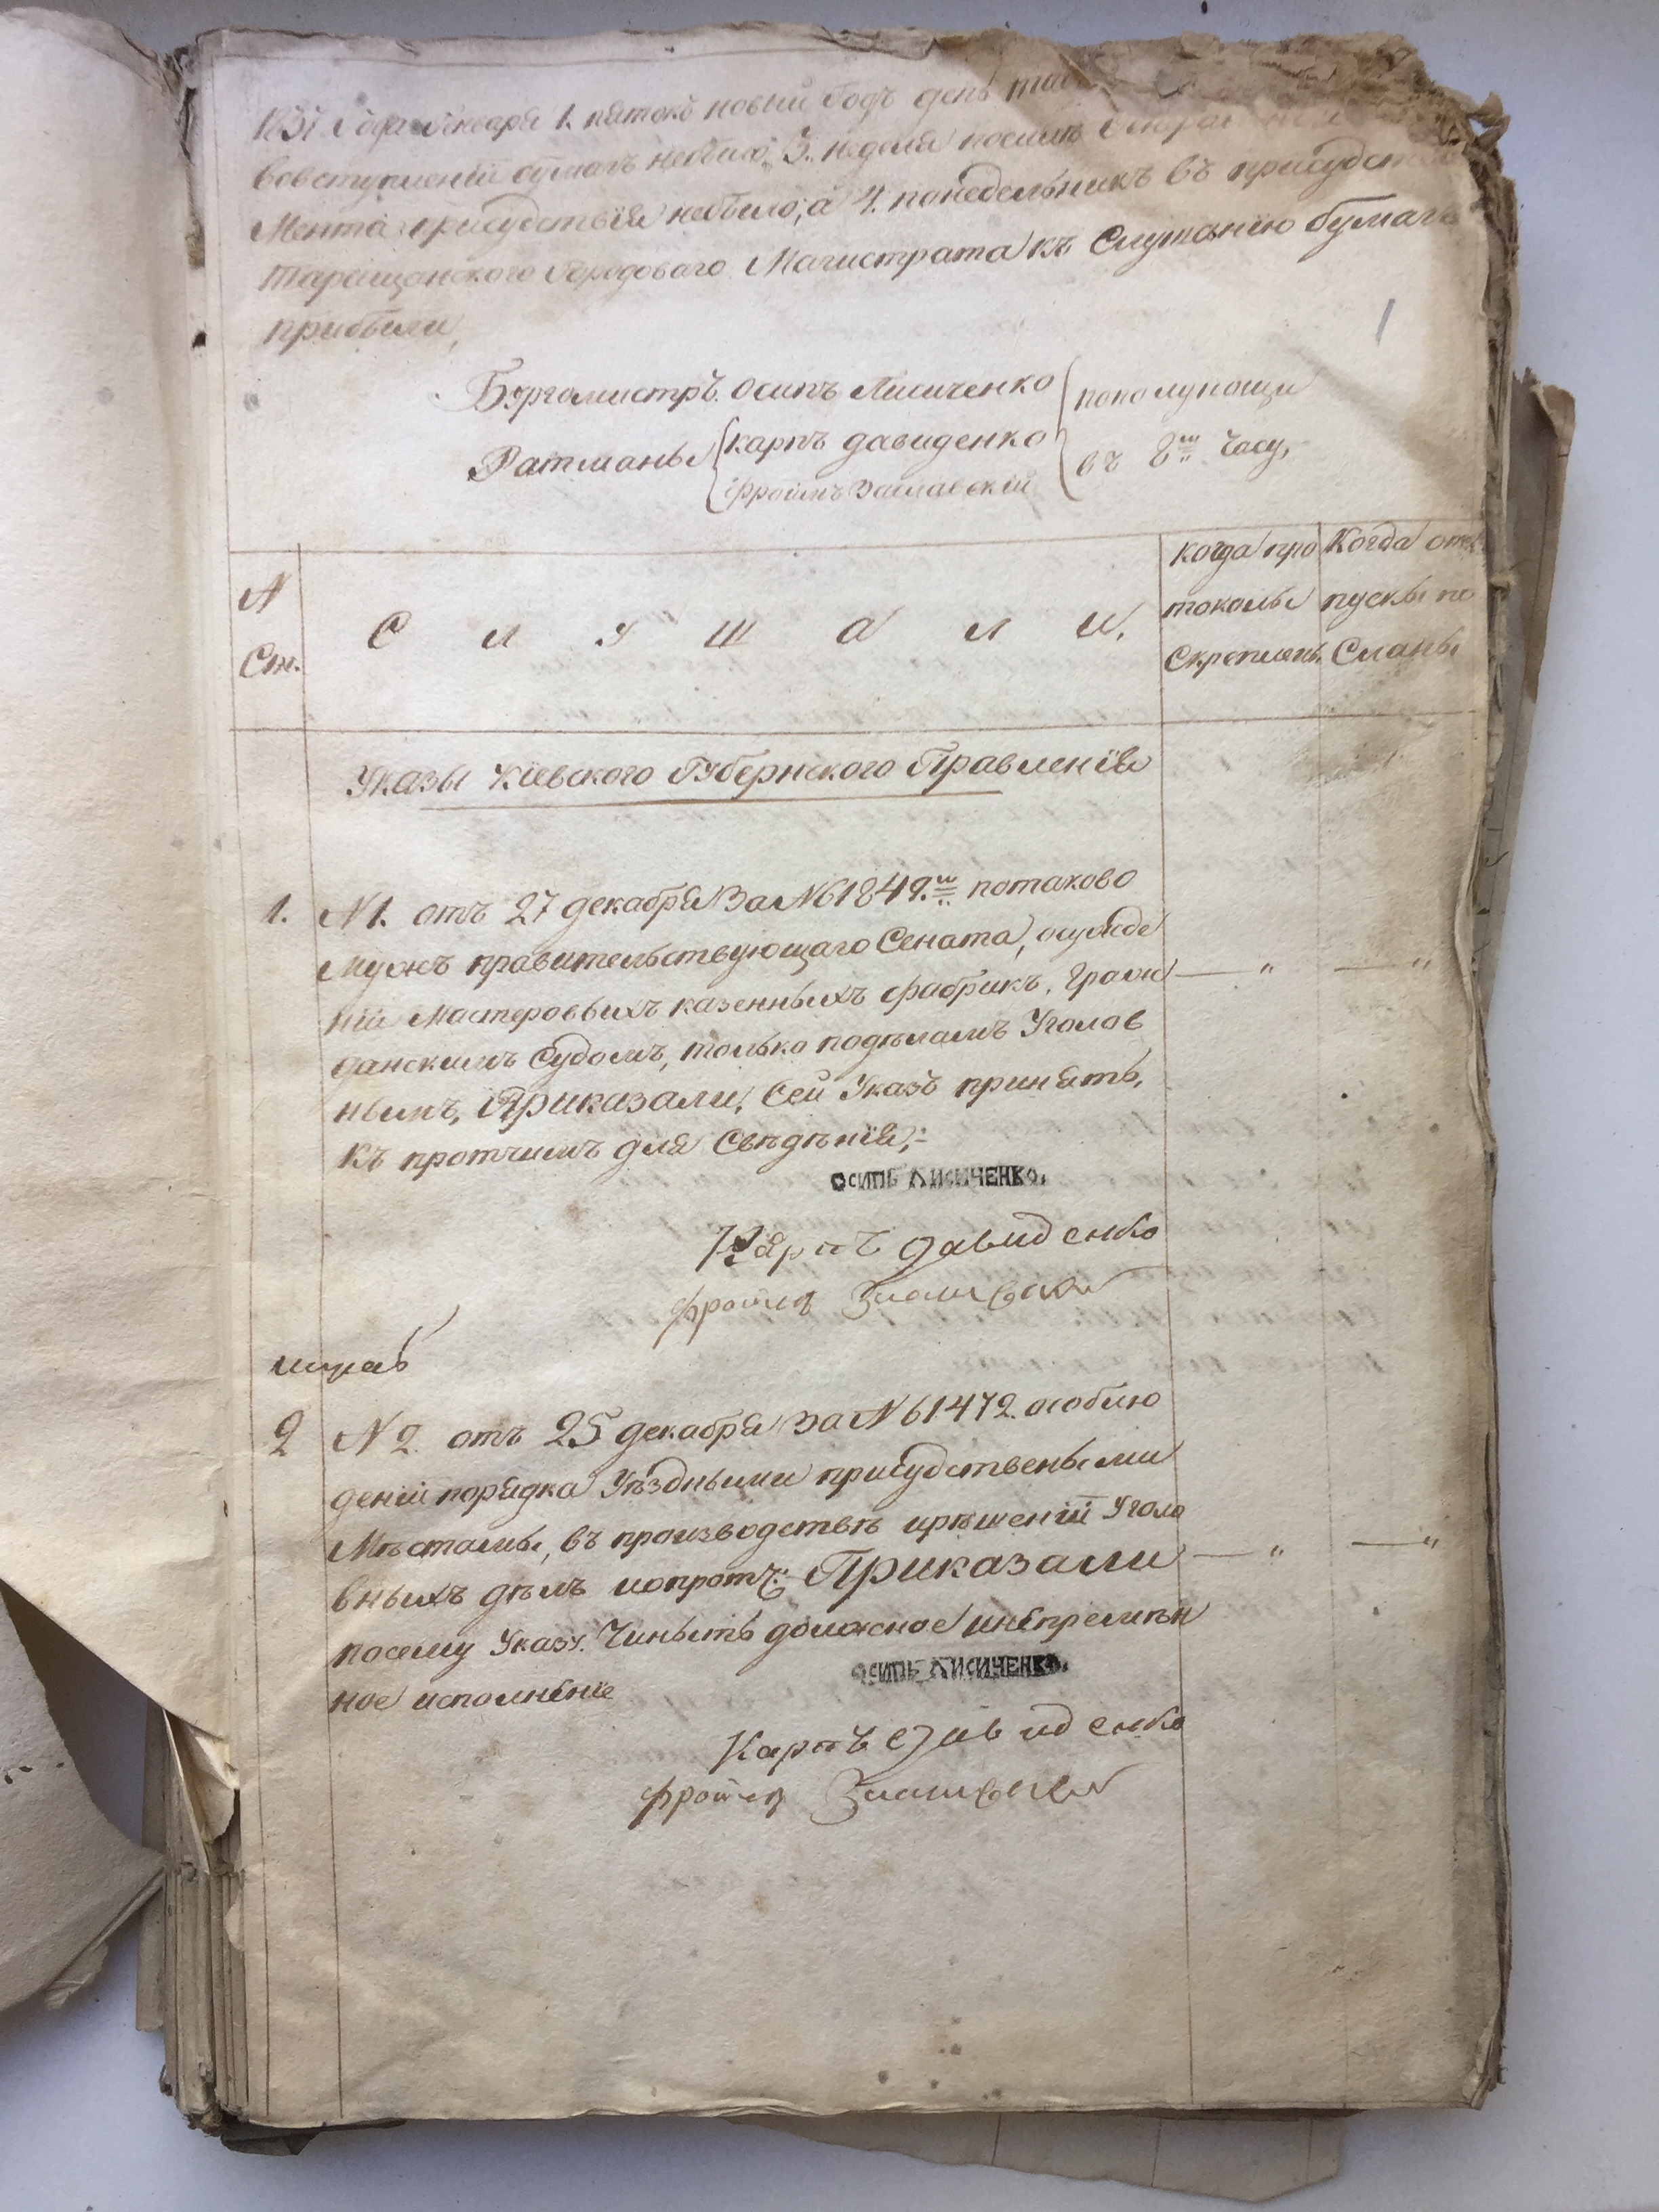 Генваря 1. пятокъ новый годъ день
вовступленіи бумагъ небыло, 3. неделя
присудствія небыло, а 4. понедельникъ въ присудст
Таращанского Городоваго Магистрата къ Слушанію бумагъ
прибыли,
1
Бургомистръ осипъ Лисиченко
пополунощи
Ратманы карпъ давиденко
въ 8ш часу,
фроимъ Заславскій
когда про Когда от
N С л у ш а л и. токолы пускы по
Ст. Скреплены. Сланы
Указы Кіевского Губернского Правленія
1. N 1. отъ 27 декабря За N 61849.ш потаково
муожъ правительствующаго Сената, осужде
ніи Мастеровыхъ казенныхъ фабрикъ, Граж — „ — „
данскимъ Судомъ, только подѣламъ Уголов
нымъ, Приказали, Сей Указъ принять,
къ протчимъ для Свѣдѣнія,
ОСИПЪ ЛИСИЧЕНКО.
Карпъ давиденко
фроимъ
2 N 2. отъ 25 декабря За N 61472. особлю
деніи порядка Уѣздными присудствеными
Мѣстамы, въ производствѣ ирѣшеніи Уголо
вныхъ дѣлъ ипротч: Приказали — „ — „
посему Указу. Чиныть должное инепремѣн
ное исполнение
ОСИПЪ ЛИСИЧЕНКО.
Карпъ давиденко
фроимъ